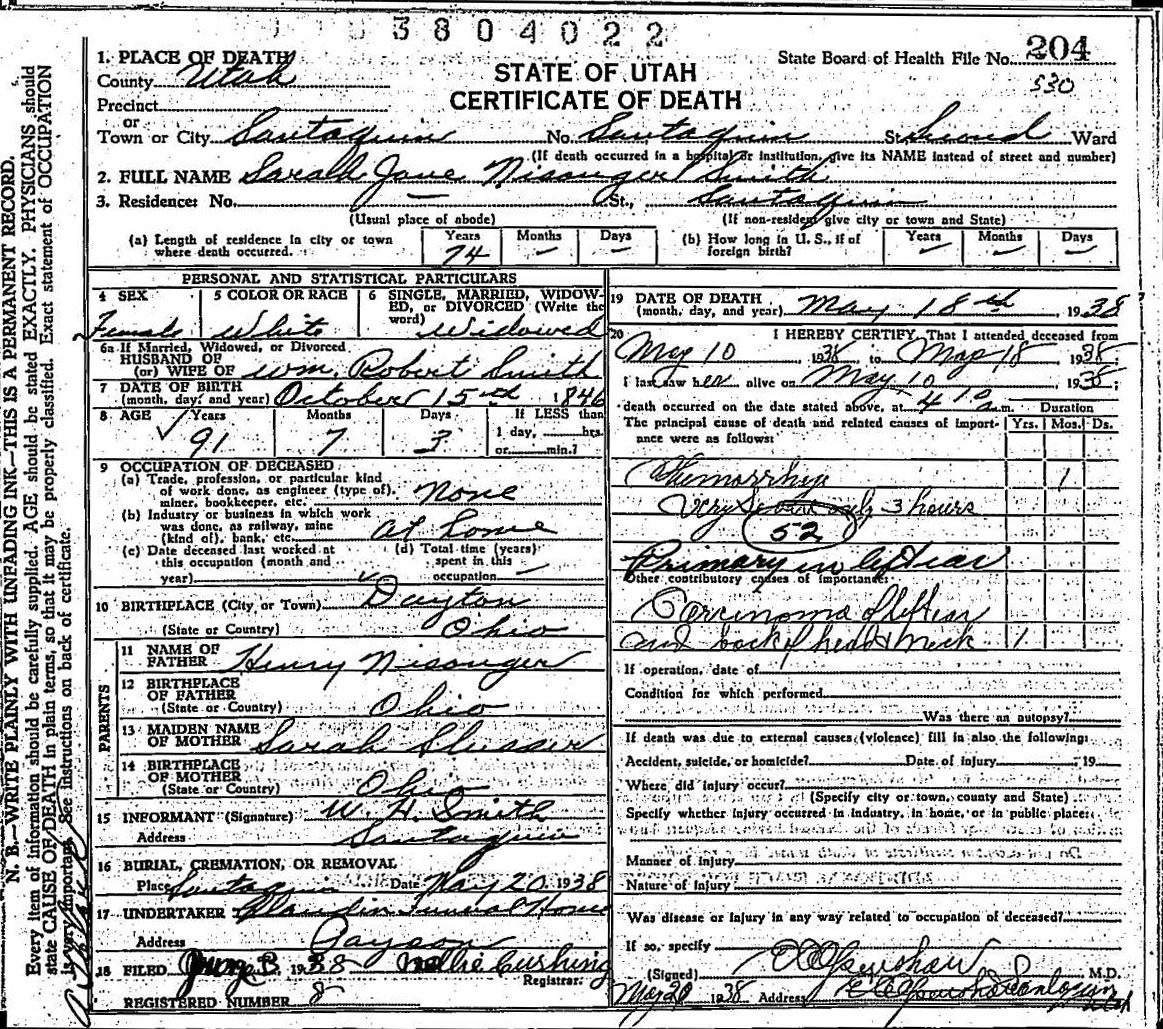 3804022
1. PLACE OF DEATH
State Board of Health File No. 204
County Utah
STATE OF UTAH
530
Precinct
CERTIFICATE OF DEATH
or
Town or City Santaquin No. Santaquin St. Second Ward
(If death occurred in a hospital or institution, give its NAME instead of street and number)
2. FULL NAME Sarah Jane Nisonger Smith
3. Residence: No. — St., Santaquin
(Usual place of abode) (If non-resident give city or town and State)
(a) Length of residence in city or town where death occurred. Years 74 Months — Days —
(b) How long in U. S., if of foreign birth? Years — Months — Days —
PERSONAL AND STATISTICAL PARTICULARS
4 SEX Female
5 COLOR OR RACE White
6 SINGLE, MARRIED, WIDOWED, or DIVORCED (Write the word) Widowed
6a If Married, Widowed, or Divorced
HUSBAND OF
(or) WIFE OF Wm. Robert Smith
7 DATE OF BIRTH
(month, day, and year) October 15th 1846
8 AGE Years 91 Months 7 Days 3
If LESS than
1 day, hrs.
or min.?
9 OCCUPATION OF DECEASED
(a) Trade, profession, or particular kind
of work done, as engineer (type of),
miner, bookkeeper, etc. None
(b) Industry or business in which work
was done, as railway, mine
(kind of), bank, etc. At home
(c) Date deceased last worked at
this occupation (month and
year)
(d) Total time (years)
spent in this
occupation —
10 BIRTHPLACE (City or Town) Dayton
(State or Country) Ohio
PARENTS
11 NAME OF
FATHER Henry Nisonger
12 BIRTHPLACE
OF FATHER
(State or Country) Ohio
13 MAIDEN NAME
OF MOTHER Sarah Slusser
14 BIRTHPLACE
OF MOTHER
(State or Country) Ohio
15 INFORMANT (Signature) W. H. Smith
Address Santaquin
16 BURIAL, CREMATION, OR REMOVAL
Place Santaquin Date May 20 1938
17 UNDERTAKER Funeral Home
Address Payson
18 FILED 1938 Nellie Cushing
Registrar.
REGISTERED NUMBER 8
19 DATE OF DEATH
(month, day, and year) May 18th, 1938
20 I HEREBY CERTIFY, That I attended deceased from
May 10, 1938, to May 18, 1938;
I last saw her alive on May 10, 1938;
death occurred on the date stated above, at 4 10 a.m. Duration
The principal cause of death and related causes of importance were as follows: Yrs. Mos. Ds.
Hemorrhage 1
Very only 3 hours
52
Primary in left ear
Other contributory causes of importance:
Carcinoma of left ear
and back of head & neck 1
If operation, date of
Condition for which performed
Was there an autopsy?
If death was due to external causes (violence) fill in also the following:
Accident, suicide, or homicide? Date of injury , 19
Where did injury occur?
(Specify city or town, county and State)
Specify whether injury occurred in industry, in home, or in public place:
Manner of Injury
Nature of Injury
Was disease or injury in any way related to occupation of deceased?
If so, specify
(Signed) M.D.
May 20 1938 Address Utah
N. B.—WRITE PLAINLY WITH UNFADING INK—THIS IS A PERMANENT RECORD.
Every item of information should be carefully supplied. AGE should be stated EXACTLY. PHYSICIANS should
state CAUSE OF DEATH in plain terms, so that it may be properly classified. Exact statement of OCCUPATION
is very important. See instructions on back of certificate.